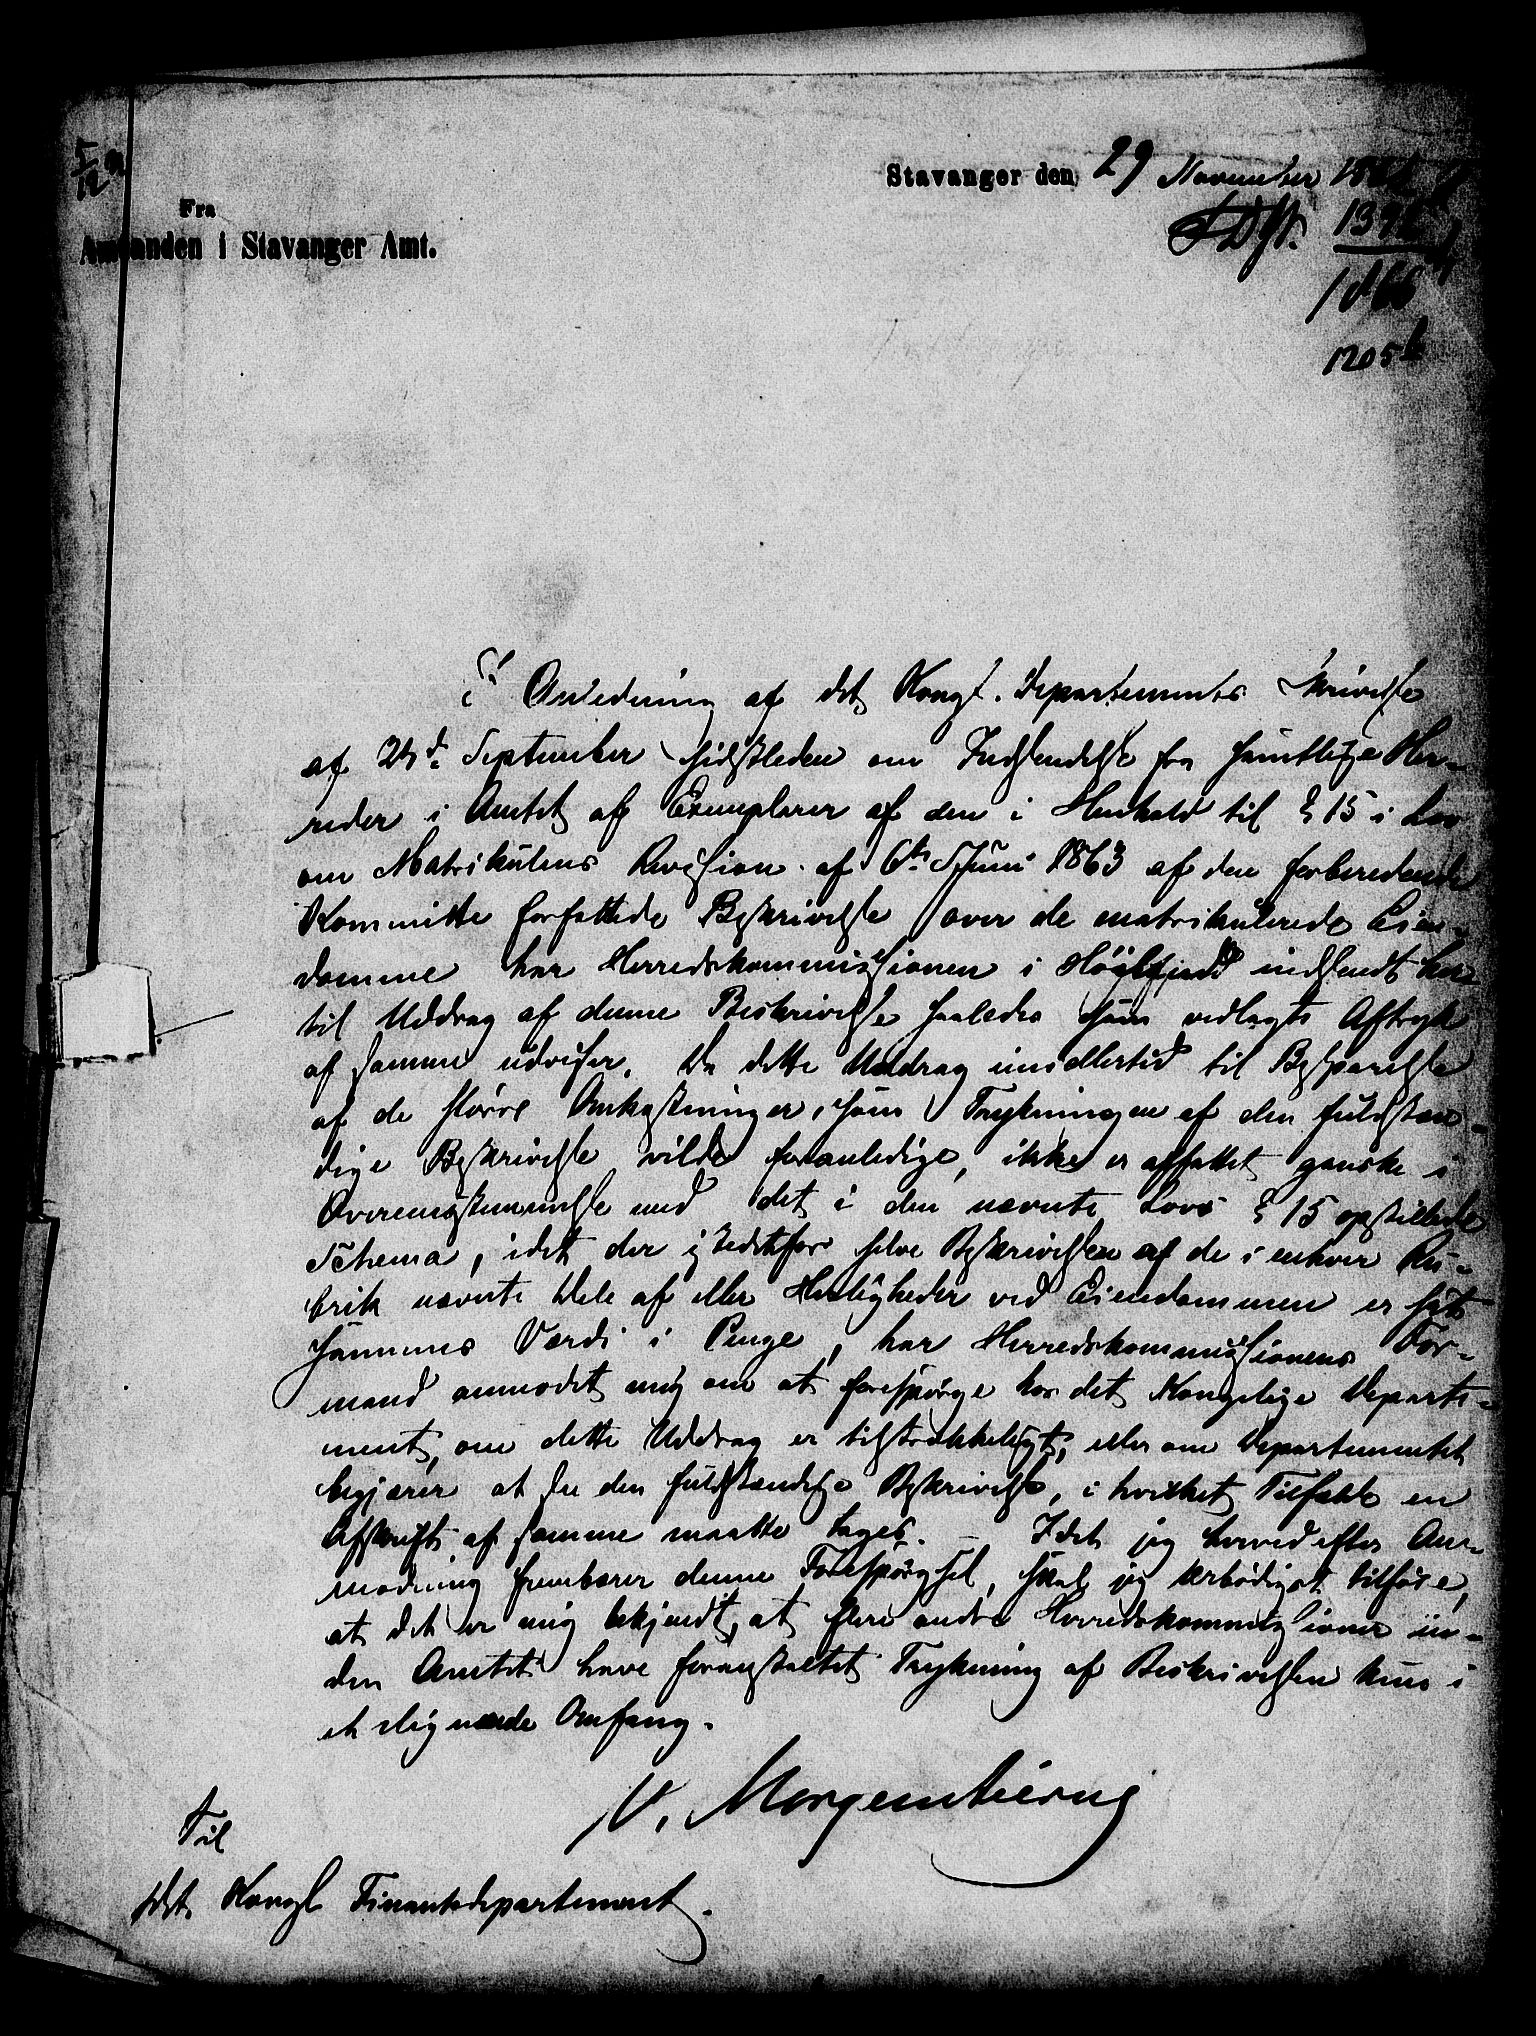 5/12
Stavanger den 29 November
Fra
Amtmanden i Stavanger Amt.
1205 b
I Anledning af det Kongl. Departements Skrivelse
af 24de September sidstleden om Indsendelse fra samtlige Her-
reder i Amtet af Exemplarer af den i Henhold til § 15 i Lov
om Matrikulens Revision af 6te Juni 1863 af den forberedende
Kommitte forfattede Beskrivelse over de matrikulerede Eien-
domme har Herredskommissionen i Høilefjord indsendt her-
til Uddrag af denne Beskrivelse saaledes som vedlagte Aftryk
af samme udviser. Da dette Uddrag imidlertid til Besparelse
af de større Omkostninger, som Trykningen af den fuldstæn-
dige Beskrivelse vilde foranledige, ikke er affattet ganske i
Overensstemmelse med det i den nævnte Lovs § 15 opstillede
Schema, idet der istedetfor selve Beskrivelsen af de i enhver Ru-
brik nævnte Dele af eller Herligheder ved Eiendommen er sat
sammes Værdi i Penge, har Herredskommissionens For-
mand anmodet mig om at forespørge hos det Kongelige Departe-
ment, om dette Uddrag er tilstrækkeligt, eller om Departementet
begjærer at se den fuldstændige Beskrivelse, i hvilket Tilfælde en
Afskrift af samme maatte tages. – Idet jeg herved efter An-
modning frembærer denne Forespørgsel, skal jeg ærbødigst tilføie,
at det er mig bekjendt, at flere andre Herredskommissioner in-
den Amtet have foranstaltet Trykning af Beskrivelsen kun i
et lignende Omfang.
V. Morgenstierne
Til
det Kongl Finantsdepartement.